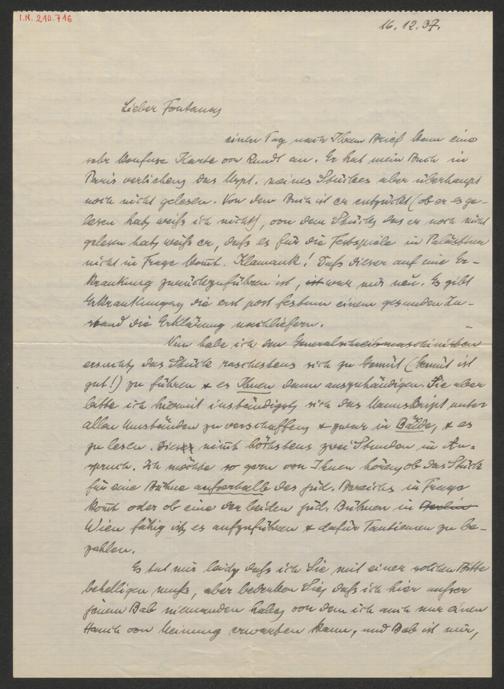 I.N. 210.716
16.12.37.
Lieber Fontana,
einen Tag nach Ihrem Brief kam eine
sehr konfuse Karte von Rundt an. Er hat mein Buch in
Paris verliehen, das Mspt. meines Stückes aber überhaupt
noch nicht gelesen. Von dem Buch ist er entzückt (ob er es ge-
lesen hat, weiß ich nicht), von dem Stück, das er noch nicht
gelesen hat, weiß er, daß es für die Festspiele in Palästina
nicht in Frage kommt. Klamauk! Daß dieser auf eine Er-
krankung zurückzuführen ist, war mir neu. Es gibt
Erkrankungen, die erst post festum einem gesunden Zu-
stand die Erklärung nachliefern.
Nun habe ich den Generalschreibmaschinisten
ersucht, das Stück raschestens sich zu
zu führen & es Ihnen dann auszuhändigen. Sie aber
bitte ich hiemit inständigst, sich das Manuskript unter
allen Umständen zu verschaffen & zwar in Bälde, & es
zu lesen. Dies nimmt höchstens zwei Stunden in An-
spruch. Ich möchte so gern von Ihnen hören, ob das Stück
für eine Bühne außerhalb des jüd. Bereichs in Frage
kommt oder ob eine der beiden jüd. Bühnen in Berlin
Wien fähig ist, es aufzuführen & dafür Tantiemen zu be-
zahlen.
Es tut mir leid, daß ich Sie mit einer solchen Bitte
behelligen muß, aber bedenken Sie, daß ich hier außer
jenem Bab niemanden habe, von dem ich auch nur einen
Hauch von Meinung erwarten kann, und Bab ist mir,